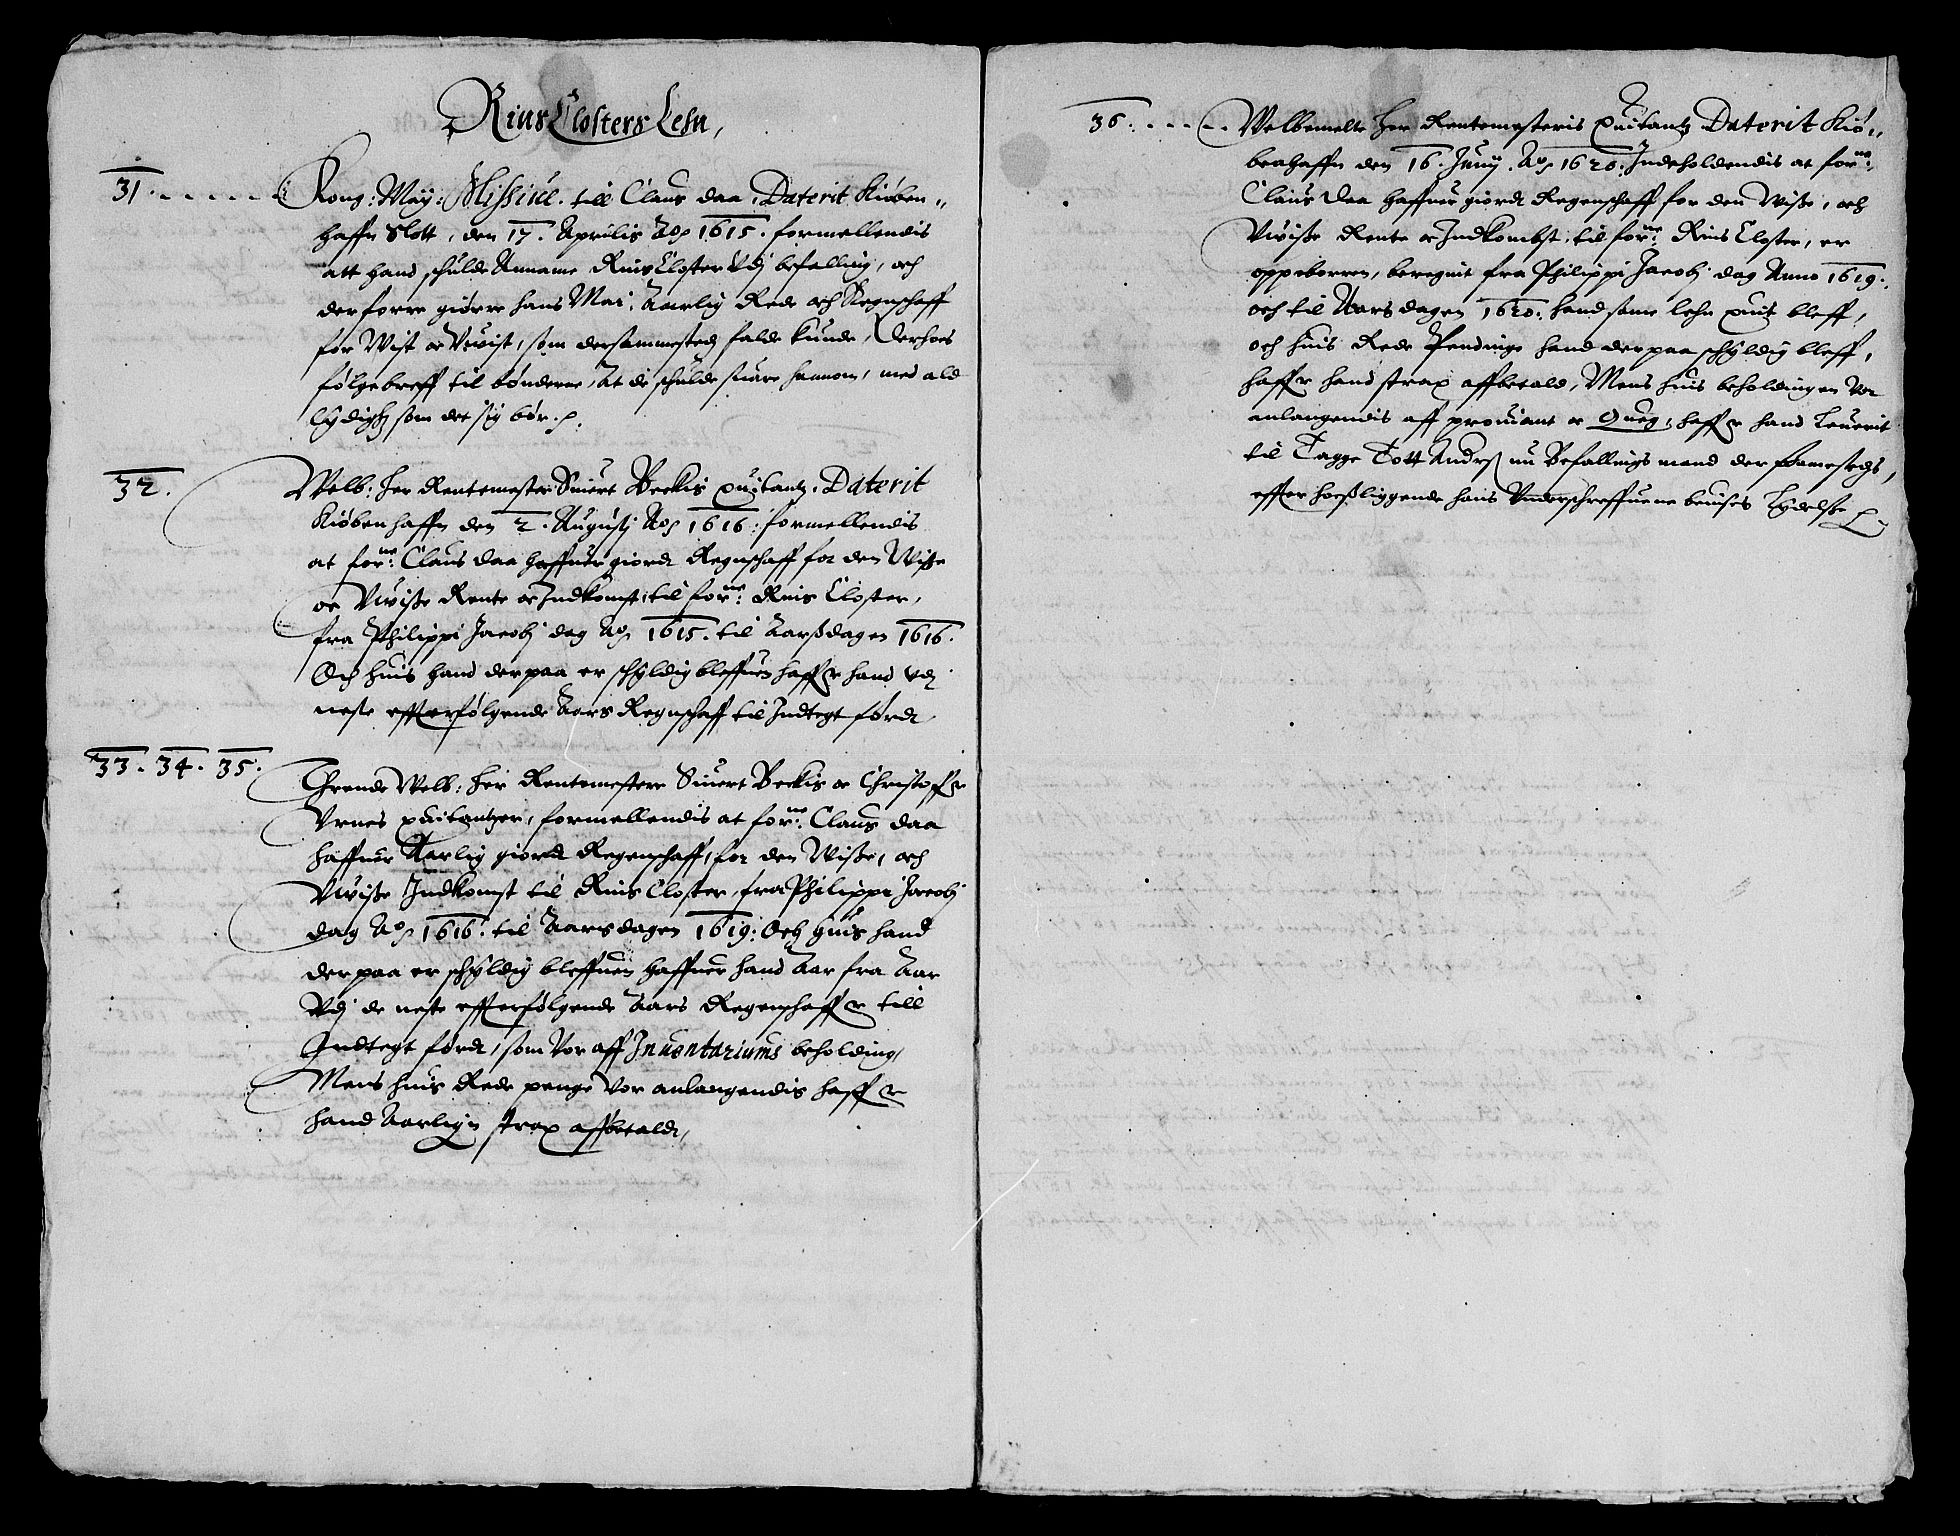 Rins Closters Lehn,
31. Kong: May: Missive. till Claus daa, Daterit Kiøben„
haffn Slott, den 17. Aprilis Ao 1615. formellendis
att hand schulde Anname Rins Closter Vdj befalling, och
der forre giørre hans Mai: Aarlig Rede och Regnschaff
for Wist oc Vwist, som dersammestedz falde kunde, Derhos
følgebreff til bønderne, At de schulde suare hannom, med ald
lydighz som det sig bør.
32. Welb: Her Rentemester Siuert Beckis quitantz. Daterit
Kiøbenhaffn den 2. Augustj Ao 1616. formellendis
at forne: Claus daa haffuer giordt Regnschaff for den Wiße
oc Vwiße Rente oc Indkomst, til forne: Rins Closter,
fra Philippi Jacobj dag Ao 1615. til Aarßdagen 1616.
Och huis hand der paa er schyldig bleffuen haffr hand vdj
neste effterfølgende Aars Regnschaff til Indtegt førdt,
33. 34. 35. Thrende Welb: Her Rentemestere Siuert Beckis oc Christoffr
Vrnes quitantzer, formellendis at forne: Claus daa
haffuer Aarlig giordt Regenschaff, for den Wiße, och
Vwiße Indkomst til Rins Closter, fra Philippi Jacobj
dag Ao 1616. til Aarsdagen 1619: Och huis hand
der paa er schyldig bleffuen haffuer hand Aar fra Aar
Vdj de neste effterfølgende Aars Regenschaffr till
Indtegt førdt, som Vor aff Inuentariums beholding,
Mens huis Rede penge Vor anlangendis haffr
hand Aarlign strax affbetaldt,
36. Welbemelte Her Rentemesteris quitantz Daterit Kiø„
benhaffn den 16. Junij. Ao 1620. Indeholdendis at forne:
Claus Daa haffuer giordt Regenschaff for den Wiße, och
Vwiße Rente oc Indkombst, til forne: Rins Closter, er
oppeborren, beregnit fra Philippi Jacobj dag Anno 1619.
och til Aars dagen 1620. hand same lehn quit bleff,
och huis Rede Pendinge hand der paa schyldig bleff,
haffr hand strax affbetald, Mens huis beholdingen Vor
anlangendis aff prouiant oc Queg, haffr hand Leuerit
til Tagge Tott Andrs nu Befallings mand der samestedz,
effter hosßliggende hans Vnderschreffuene beuises Lydelse